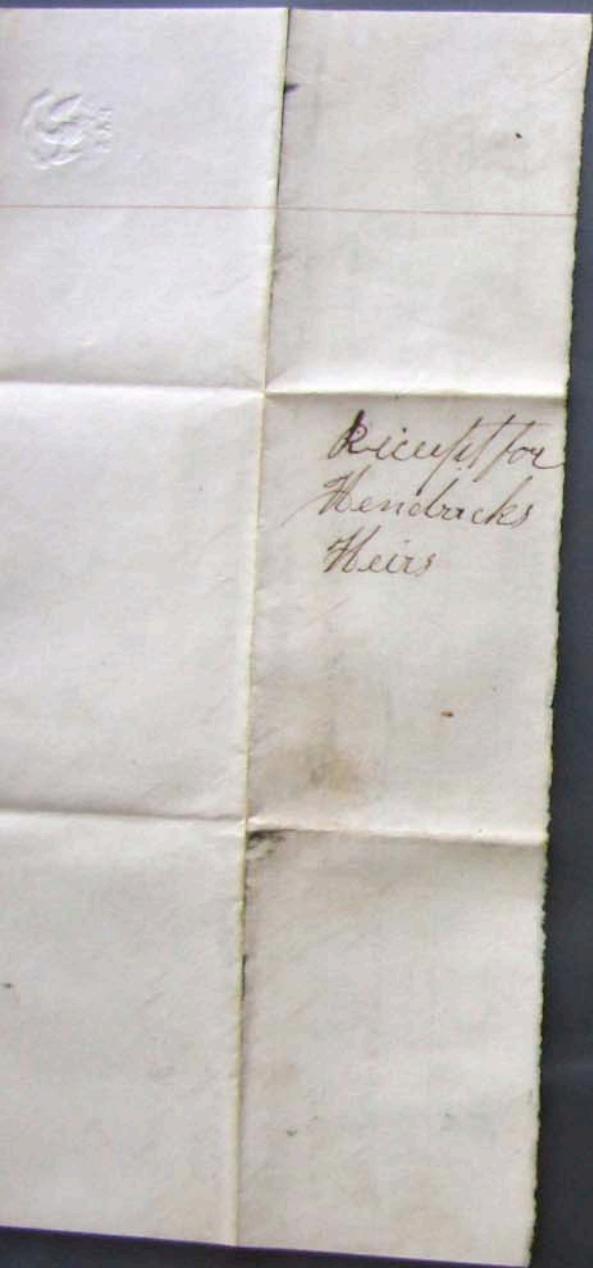 Riceipt for
Hendracks
Heirs